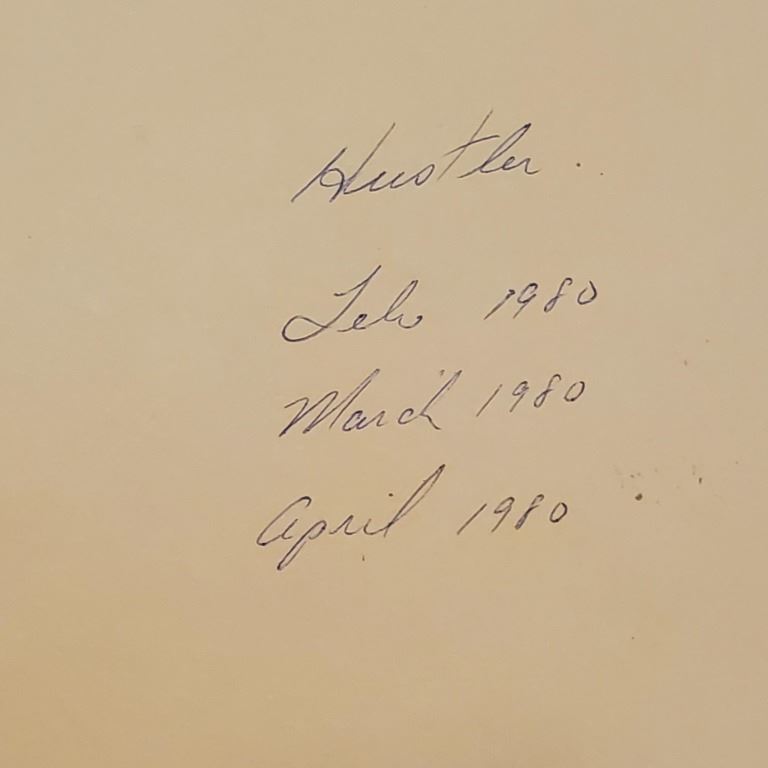 Hustler.
Feb 1980
March 1980
April 1980